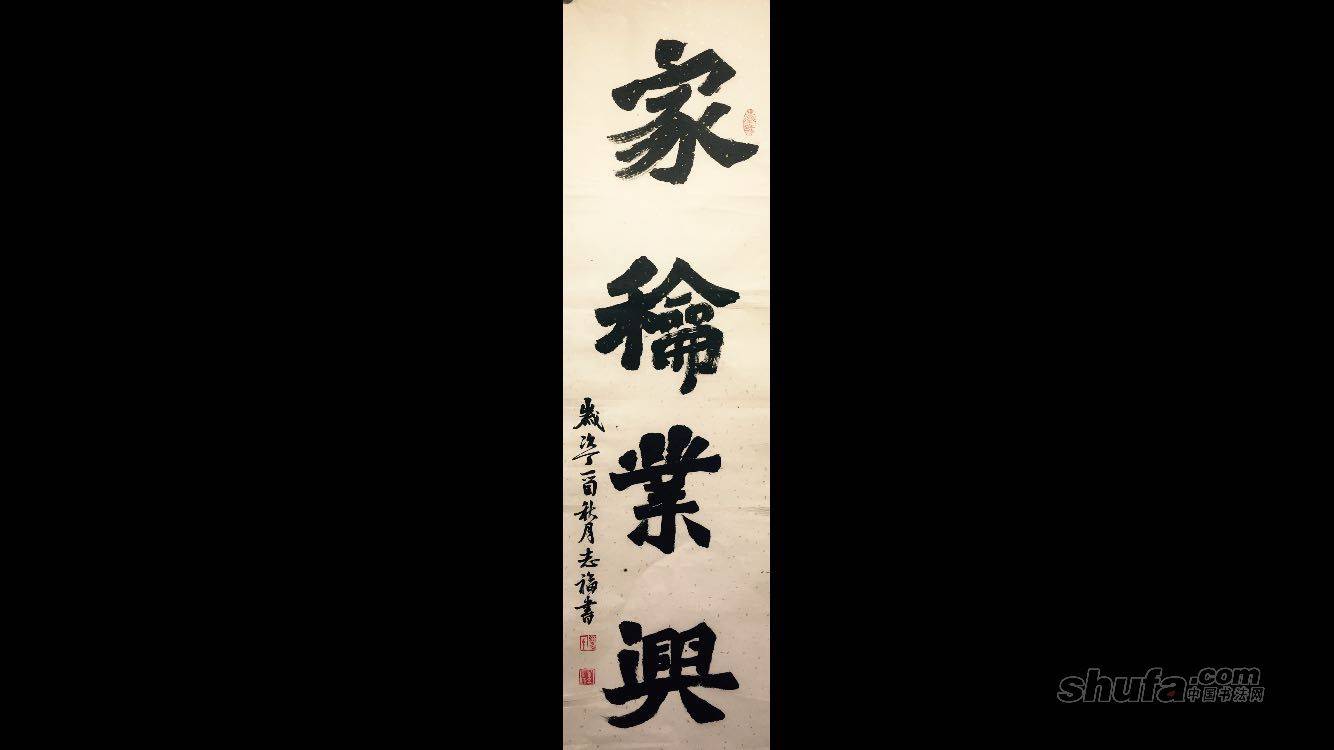 家龢業興
歲次丁酉秋月志福書
shufa.com
中国书法网